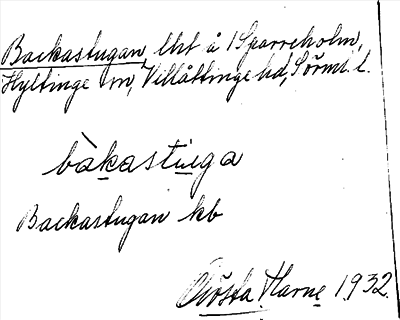 Backastugan, lht å Sparreholm,
Hyltinge sn, Villåttinge hd, Sörml. l.
bàkastuga
Backastugan kb
Gösta Harne 1932.